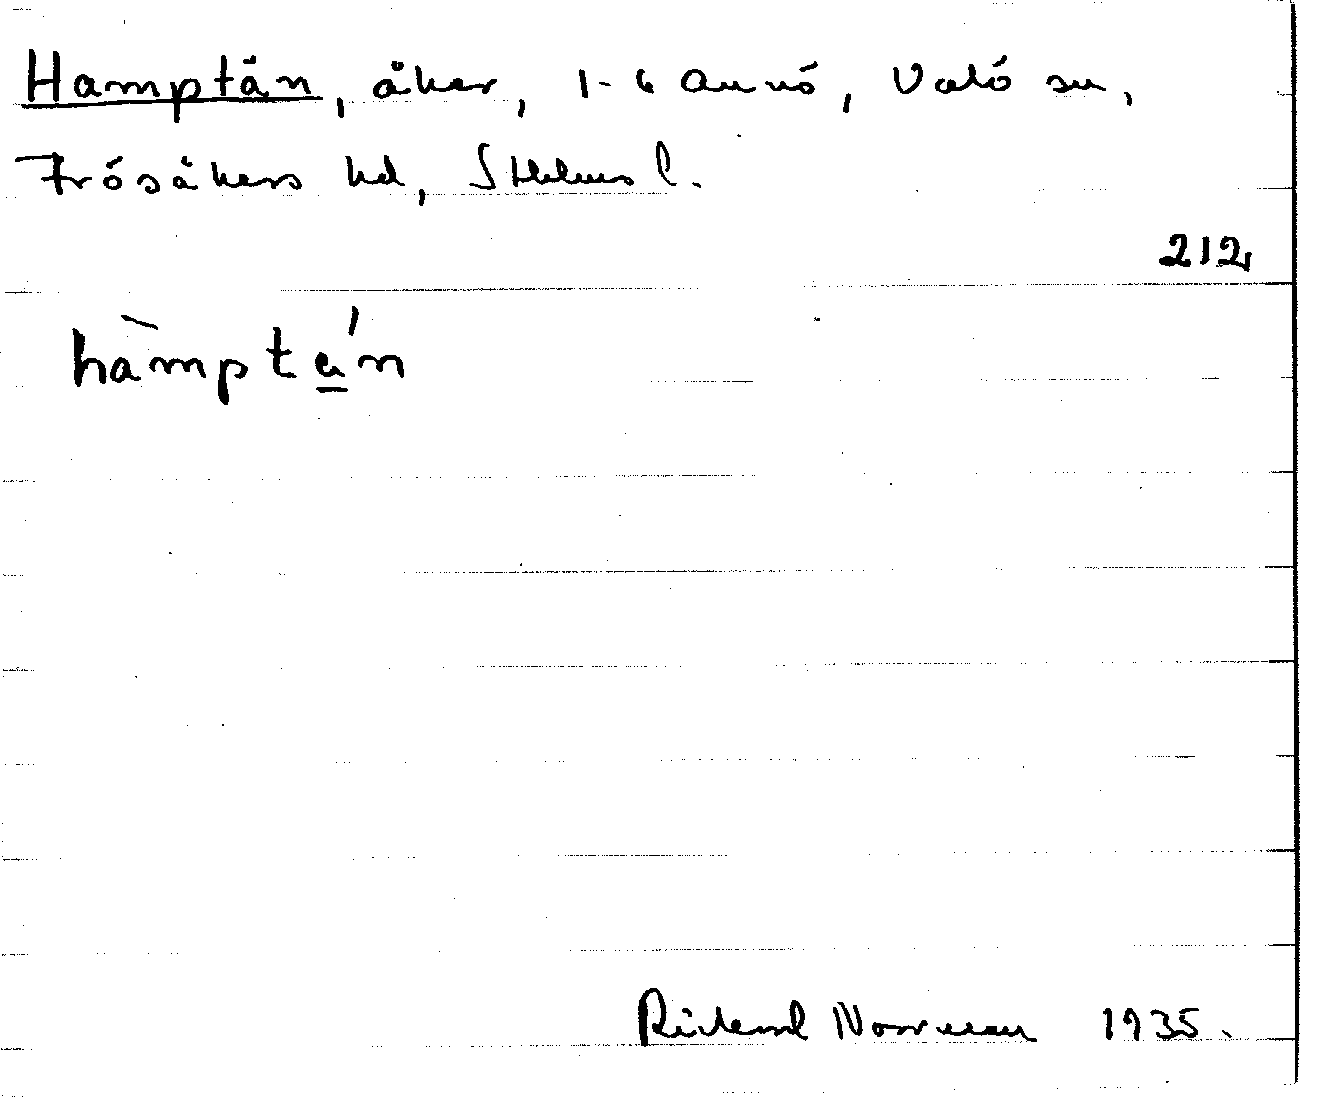 Hamptån, åker, 1-6 Annö, Vätö sn,
Frösåkers hd, Sthlms l.
212
hàmptán
Rickard Norrman 1935.